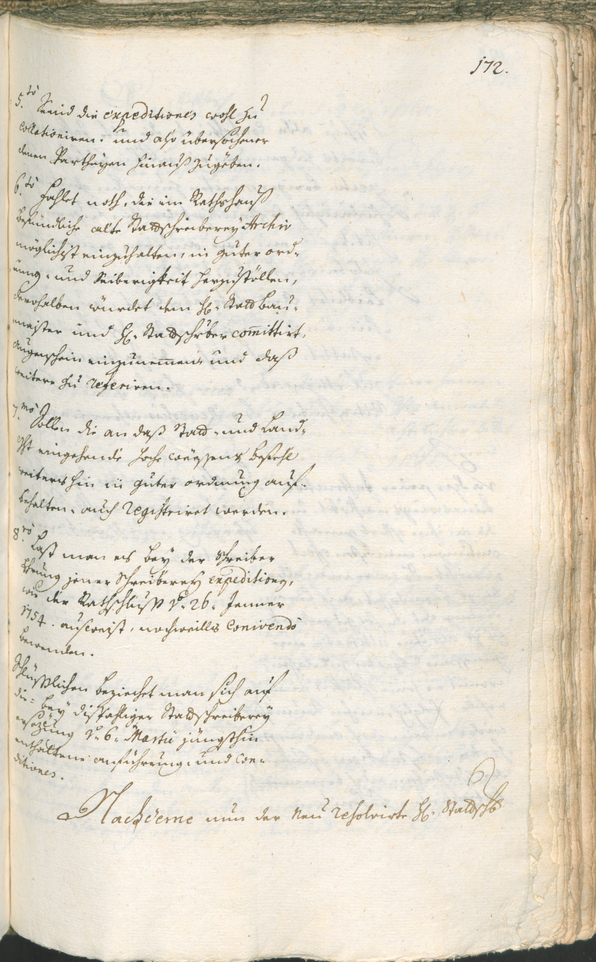 172.
5.to Seind die expeditiones wohl zu
collationiren. und also übersechener
denen Partheyen hinauszugeben.
6.to Fahlet noth, die im Rathshauß
befündliche alte Stattschreiberey Archiv
möglichst einzuhalten, in guter ord-
nung, und Seiberigkeit herzustöllen,
derohalben würdet dem H: Stattbau-
meister und H: Stattschrber committirt,
augenschein einzunemmen und daß
weitere zu referiren.
7.mo Sollen die an daß Statt- und Land-
eingehende hoche Befehl
weiters hin in guter ordnung auf-
behalten, auch registriret werden.
8.vo Last man es bey der schreiber
jener Schreiberey expeditionen,
wie der Rathschluß de 26. Jenner
1754. ausweist, nochweills conivendo
bewenden.
Schlüßlichen beziechet man sich auf
die bey dißfahliger Stattschreiberey
ersezung de 6. Martii jüngsthin
enthaltene anführung und con-
ditiones.
Nachdeme nun der Neu resolvirte H: Stattschb